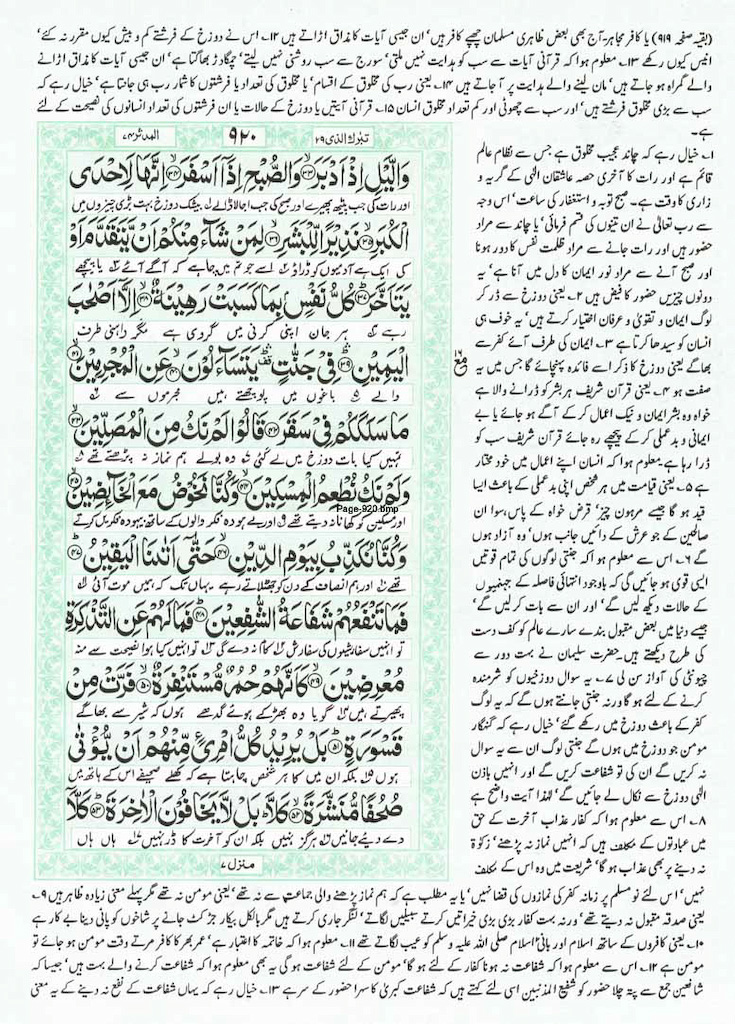 (بقیہ صفحہ ۹۱۹) یا کافر مجاہر۔ آج بھی بعض ظاہری مسلمان چھپے کافر ہیں' ان جیسی آیات کا مذاق اڑاتے ہیں ۱۲۔ اس نے دوزخ کے فرشتے کم و بیش کیوں مقرر نہ کئے'
انیس کیوں رکھے ۱۳۔ معلوم ہوا کہ قرآنی آیات سے سب کو ہدایت نہیں ملتی' سورج سے سب روشنی نہیں لیتے' چمگادڑ بھاگتا ہے' ان آیات سے نہ ماننے
والے گمراہ ہو جاتے ہیں' مان لینے والے ہدایت پر آ جاتے ہیں ۱۴۔ یعنی رب کی مخلوق کے اقسام' یا مخلوق کی تعداد یا فرشتوں کا شمار رب ہی جانتا ہے' خیال رہے کہ
سب سے بڑی مخلوق فرشتے ہیں' اور سب سے چھوٹی اور کم تعداد مخلوق انسان ۱۵۔ قرآنی آیتیں یا دوزخ کے حالات یا ان فرشتوں کی تعداد انسانوں کی نصیحت کے لئے
ہے۔
تبٰرک الذی ۲۹ ۹۲۰ المدثر ۷۴
وَالَّيْلِ اِذْ اَدْبَرَ ۳۳ وَالصُّبْحِ اِذَا اَسْفَرَ ۳۴ اِنَّهَا لَاِحْدَى
اور رات کی جب پیٹھ پھیرے اور صبح کی جب اجالا ڈالے بیشک دوزخ بہت بڑی چیزوں میں
الْكُبَرِ ۳۵ نَذِيْرًا لِّلْبَشَرِ ۳۶ لِمَنْ شَآءَ مِنْكُمْ اَنْ يَّتَقَدَّمَ اَوْ
کی ایک ہے آدمیوں کو ڈراؤ اسے جو تم میں چاہے کہ آگے آئے یا پیچھے
يَتَاَخَّرَ ۳۷ كُلُّ نَفْسٍۭ بِمَا كَسَبَتْ رَهِيْنَةٌ ۳۸ اِلَّاۤ اَصْحٰبَ
رہے ہر جان اپنی کرنی میں گروی ہے مگر داہنی طرف
الْيَمِيْنِ ۳۹ فِيْ جَنّٰتٍ يَتَسَآءَلُوْنَ ۴۰ عَنِ الْمُجْرِمِيْنَ ۴۱
والے باغوں میں پوچھتے ہیں مجرموں سے
مَا سَلَكَكُمْ فِيْ سَقَرَ ۴۲ قَالُوْا لَمْ نَكُ مِنَ الْمُصَلِّيْنَ ۴۳
تمہیں کیا بات دوزخ میں لے گئی وہ بولے ہم نماز نہ پڑھتے تھے
وَلَمْ نَكُ نُطْعِمُ الْمِسْكِيْنَ ۴۴ وَكُنَّا نَخُوْضُ مَعَ الْخَآئِضِيْنَ ۴۵
Page-920.bmp
اور مسکین کو کھانا نہ دیتے تھے اور بے ہودہ فکر والوں کے ساتھ بیہودہ فکریں کرتے
وَكُنَّا نُكَذِّبُ بِيَوْمِ الدِّيْنِ ۴۶ حَتّٰۤى اَتٰىنَا الْيَقِيْنُ ۴۷
تھے اور ہم انصاف کے دن کو جھٹلاتے رہے یہاں تک کہ ہمیں موت آئی
فَمَا تَنْفَعُهُمْ شَفَاعَةُ الشّٰفِعِيْنَ ۴۸ فَمَا لَهُمْ عَنِ التَّذْكِرَةِ
تو انہیں سفارشیوں کی سفارش کام نہ دے گی تو انہیں کیا ہوا نصیحت سے منہ
مُعْرِضِيْنَ ۴۹ كَاَنَّهُمْ حُمُرٌ مُّسْتَنْفِرَةٌ ۵۰ فَرَّتْ مِنْ
پھیرتے ہیں گویا وہ بھڑکے ہوئے گدھے ہوں کہ شیر سے بھاگے
قَسْوَرَةٍ ۵۱ بَلْ يُرِيْدُ كُلُّ امْرِئٍ مِّنْهُمْ اَنْ يُّؤْتٰى
ہوں بلکہ ان میں کا ہر شخص چاہتا ہے کہ کھلے صحیفے اس کے ہاتھ میں
صُحُفًا مُّنَشَّرَةً ۵۲ كَلَّا بَلْ لَّا يَخَافُوْنَ الْاٰخِرَةَ ۵۳ كَلَّاۤ
دے دیئے جائیں ہرگز نہیں بلکہ ان کو آخرت کا ڈر نہیں ہاں ہاں
منزل ۷
۱۔ خیال رہے کہ چاند عجیب مخلوق ہے جس سے نظام عالم
قائم ہے اور رات کا آخری حصہ عاشقان الٰہی کے گریہ و
زاری کا وقت ہے۔ صبح توبہ و استغفار کی ساعت' اس وجہ
سے رب تعالٰی نے ان تینوں کی قسم فرمائی' یا چاند سے مراد
حضور ہیں اور رات جانے سے مراد ظلمت نفس کا دور ہونا
اور صبح آنے سے مراد نور ایمان کا دل میں آنا ہے' یہ
دونوں چیزیں حضور کا فیض ہیں ۲۔ یعنی دوزخ سے ڈر کر
لوگ ایمان و تقویٰ و عرفان اختیار کرتے ہیں' یہ خوف ہی
انسان کو سیدھا کرتا ہے ۳۔ ایمان کی طرف آئے کفر سے
بھاگے یعنی دوزخ کا ذکر اسے فائدہ پہنچائے گا جس میں یہ
صفت ہو ۴۔ یعنی قرآن شریف ہر بشر کو ڈرانے والا ہے
خواہ وہ بشر ایمان و نیک اعمال کر کے آگے ہو جائے یا بے
ایمانی و بد عملی کر کے پیچھے رہ جائے قرآن شریف سب کو
ڈرا رہا ہے۔ معلوم ہوا کہ انسان اپنے اعمال میں خود مختار
ہے ۵۔ یعنی قیامت میں ہر شخص اپنی بدعملی کے باعث ایسا
قید ہو گا جیسے مرہون چیز' قرض خواہ کے پاس' سوا ان
صالحین کے جو عرش کے دائیں جانب ہوں' وہ آزاد ہوں
گے ۶۔ اس سے معلوم ہوا کہ جنتی لوگوں کی تمام قوتیں
ایسی قوی ہو جائیں گی کہ باوجود انتہائی فاصلہ کے جہنمیوں
کے حالات دیکھ لیں گے' اور ان سے بات کر لیں گے'
جیسے دنیا میں بعض مقبول بندے سارے عالم کو کف دست
کی طرح دیکھتے ہیں۔ حضرت سلیمان نے بہت دور سے
چیونٹی کی آواز سن لی ۷۔ یہ سوال دوزخیوں کو شرمندہ
کرنے کے لئے ہو گا ورنہ جنتی جانتے ہوں گے کہ یہ لوگ
کفر کے باعث دوزخ میں رکھے گئے' خیال رہے کہ گنہگار
مومن جو دوزخ میں ہوں گے جنتی لوگ ان سے یہ سوال
نہ کریں گے ان کی تو شفاعت کریں گے اور انہیں باذن
الٰہی دوزخ سے نکال لے جائیں گے' لہٰذا آیت واضح ہے
۸۔ اس سے معلوم ہوا کہ کفار عذاب آخرت کے حق
میں عبادتوں کے مکلف ہیں کہ انہیں نماز نہ پڑھنے' زکوٰۃ
نہ دینے پر بھی عذاب ہو گا' شریعت میں وہ اس کے مکلف
نہیں' اس لئے نو مسلم پر زمانہ کفر کی نمازوں کی قضا نہیں' یا یہ مطلب ہے کہ ہم نماز پڑھنے والی جماعت سے نہ تھے' یعنی مومن نہ تھے مگر پہلے معنی زیادہ ظاہر ہیں ۹۔
یعنی صدقہ مقبول نہ دیتے تھے' ورنہ بہت کفار بڑی بڑی خیراتیں کرتے سبیلیں لگاتے' لنگر جاری کرتے ہیں مگر بالکل بیکار جڑ کٹ جانے پر شاخوں کو پانی دینا بے کار ہے
۱۰۔ یعنی کافروں کے ساتھ اسلام اور بانئ اسلام صلی اللہ علیہ وسلم کو عیب لگاتے تھے ۱۱۔ معلوم ہوا کہ خاتمہ کا اعتبار ہے' عمر بھر کا کافر مرتے وقت مومن ہو جائے تو
مومن ہے ۱۲۔ اس سے معلوم ہوا کہ شفاعت نہ ہونا کفار کے لئے ہو گا' مومن کے لئے شفاعت ہو گی یہ بھی معلوم ہوا کہ شفاعت کرنے والے بہت ہیں' جیسا کہ
شافعین جمع سے پتہ چلا حضور کو شفیع المذنبین اسی لئے کہتے ہیں کہ شفاعت کبریٰ کا سہرا حضور کے سر ہے ۱۳۔ خیال رہے کہ یہاں شفاعت کے نفع نہ دینے کے یہ معنی